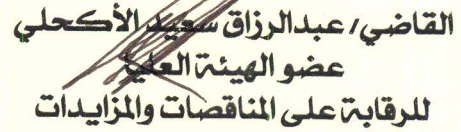 القاضي/ عبدالرزاق سعيد الأكحلي
عضو الهيئة العليا
للرقابة على المناقصات والمزايدات